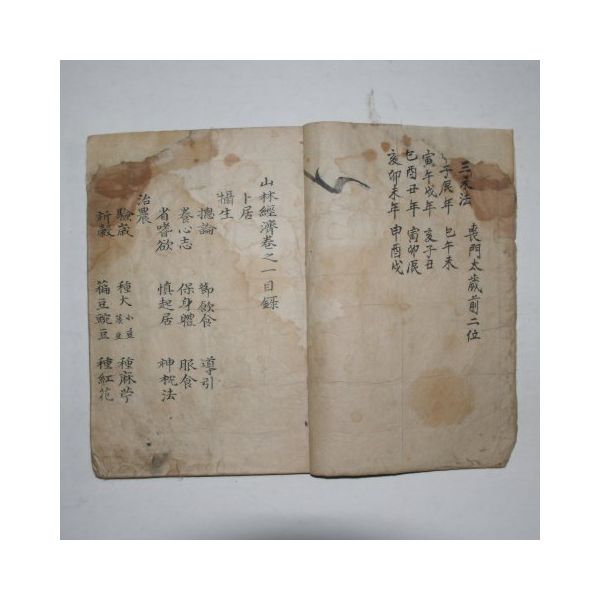 喪門太歲前二位
三灾法
子辰年 巳午未
寅午戌年 亥子丑
巳酉丑年 寅卯辰
亥卯未年 申酉戌
山林經濟卷之一目錄
卜居
攝生
揔論 節飮食 導引
養心志 保身體 服食
省嗜欲 愼起居 神枕法
治農
驗歲 種大小豆菉豆 種麻苧
祈穀 藊豆豌豆 種紅花